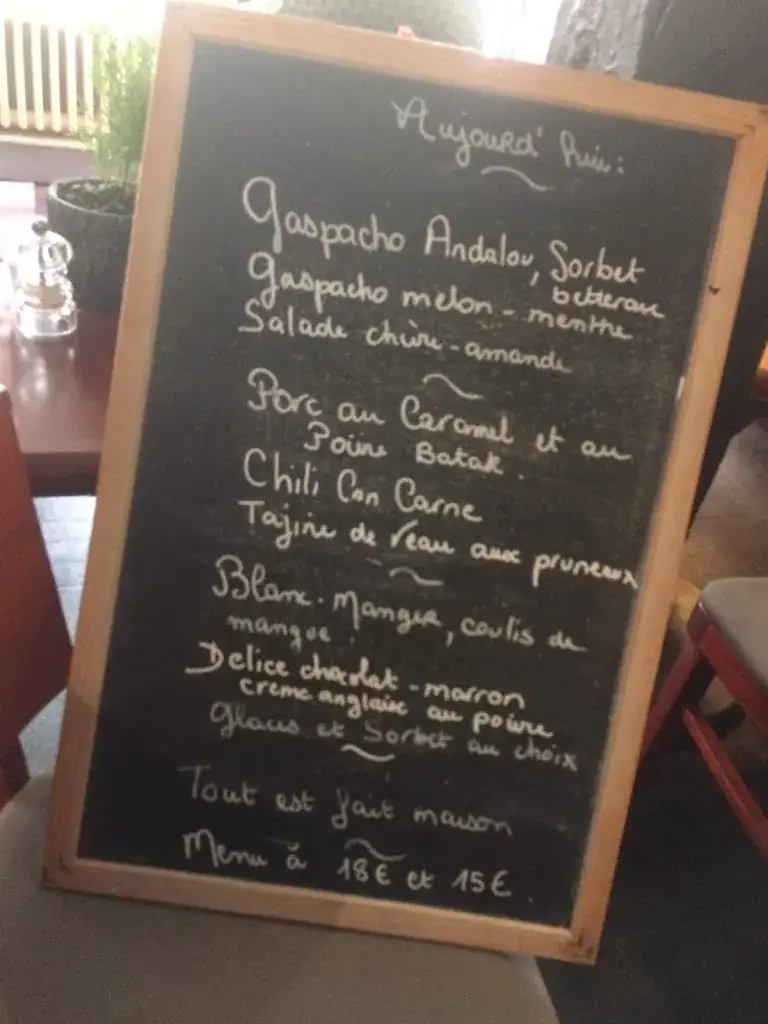 Aujourd'hui:
Gaspacho Andalou, Sorbet
betterave
Gaspacho melon - menthe
Salade chèvre - amande
Porc au Caramel et au
Poivre Batak.
Chili Con Carne
Tajine de veau aux pruneaux
Blanc-Manger, coulis de
mangue.
Délice chocolat - marron
crème anglaise au poivre
Glaces et Sorbet au choix
Tout est fait maison
Menu à 18€ et 15€.